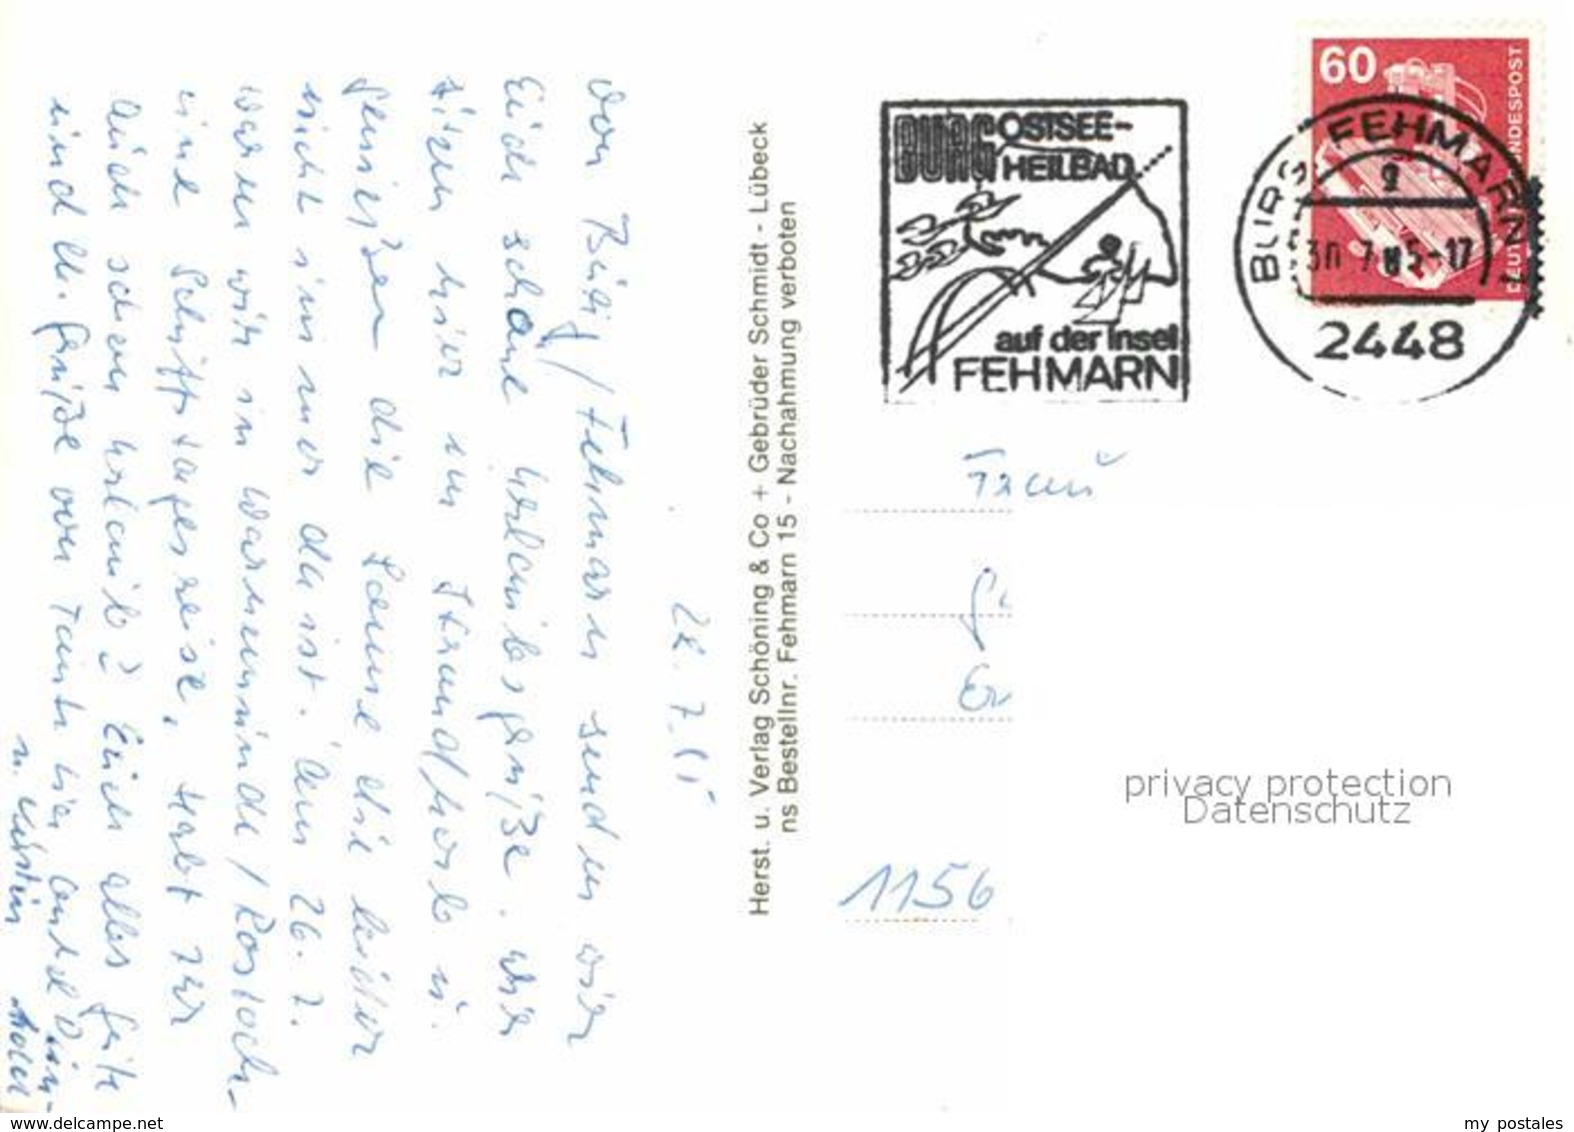 28.7.85
Von Burg/Fehmarn senden wir
Euch schöne Urlaubsgrüße. Wir
sitzen hier im Strandkorb u.
genießen die Sonne die leider
nicht immer da ist. Am 26.7.
waren wir in Warnemünde/Rostock-
eine Schifftagesreise. Habt Ihr
auch schon Urlaub? Euch alles Gute
und lb. Grüße von
u. Kerstin
Herst. u. Verlag Schöning & Co + Gebrüder Schmidt - Lübeck
ns Bestellnr. Fehmarn 15 - Nachahmung verboten
BURG OSTSEE-
HEILBAD
auf der Insel
FEHMARN
60
DEUTSCHE BUNDESPOST
BURG, FEHMARN 1
g
30.7.85-17
2448
Frau
1156
privacy protection
Datenschutz
www.delcampe.net
my postales